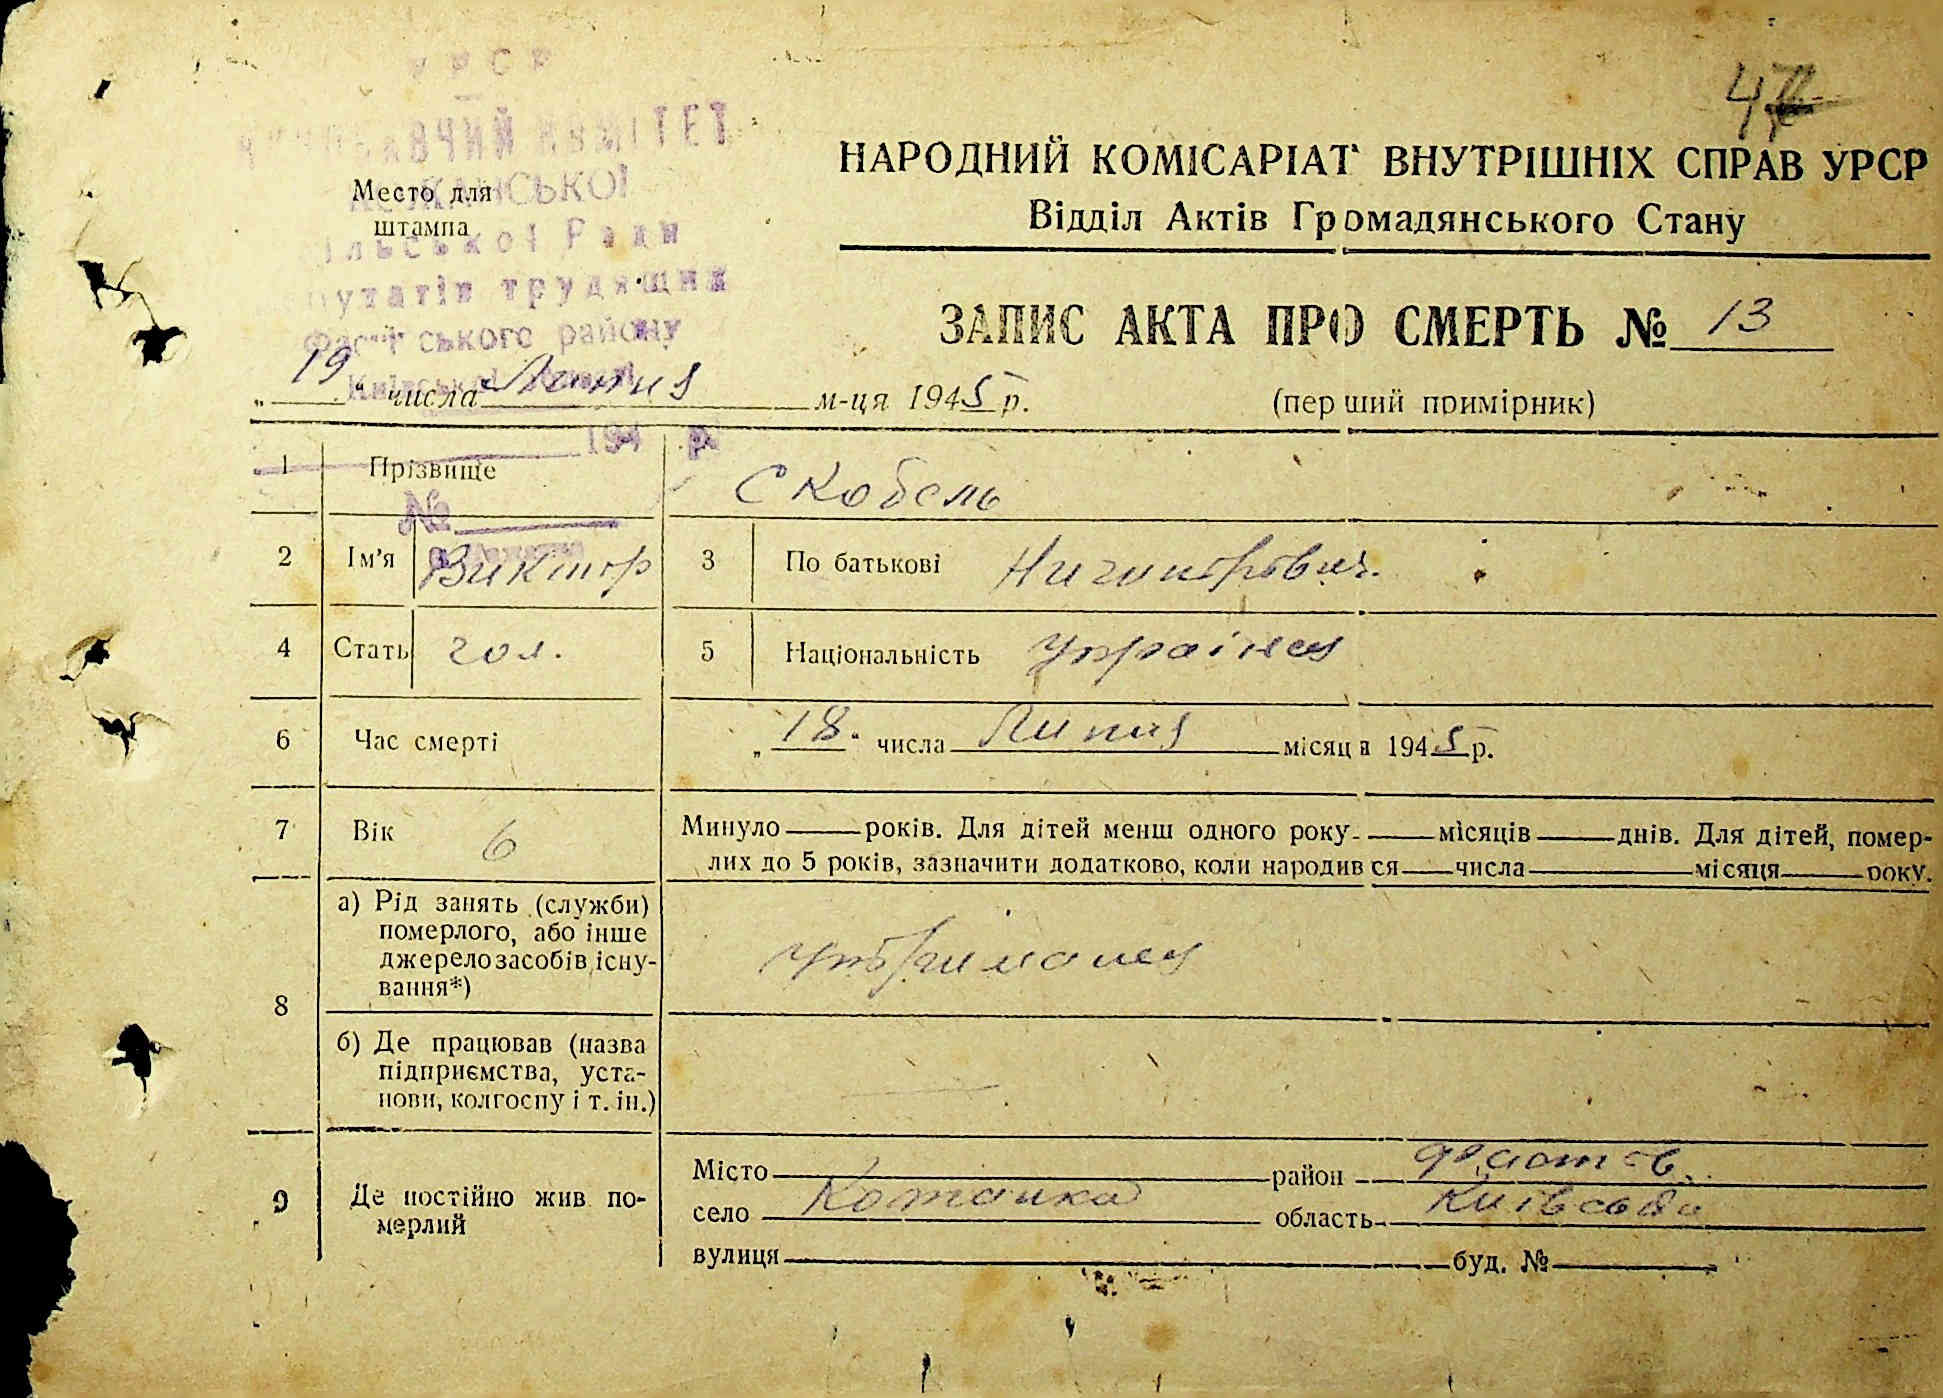 УРСР
47
ВИКОНАВЧИЙ КОМІТЕТ
НАРОДНИЙ КОМІСАРІАТ ВНУТРІШНІХ СПРАВ УРСР
Место для
штампа
Відділ Актів Громадянського Стану
сільської Ради
депутатів трудящих
ЗАПИС АКТА ПРО СМЕРТЬ № 13
Фастівського району
Київської
„19" числа Липня м-ця 1945 р.
(перший примірник)
194 р.
1 Прізвище Скобель
№
2 Ім'я Виктор 3 По батькові
4 Стать чол. 5 Національність Українец
6 Час смерті „18" числа Липня місяця 1945 р.
7 Вік 6 Минуло років. Для дітей менш одного року місяців днів. Для дітей, помер-
лих до 5 років, зазначити додатково, коли народився числа місяця року.
8 а) Рід занять (служби)
померлого, або інше
джерело засобів існу-
вання*)
утриманец
б) Де працював (назва
підприємства, уста-
нови, колгоспу і т. ін.)
9 Де постійно жив по-
мерлий
Місто район Фастов.
село область Київська
вулиця буд. №